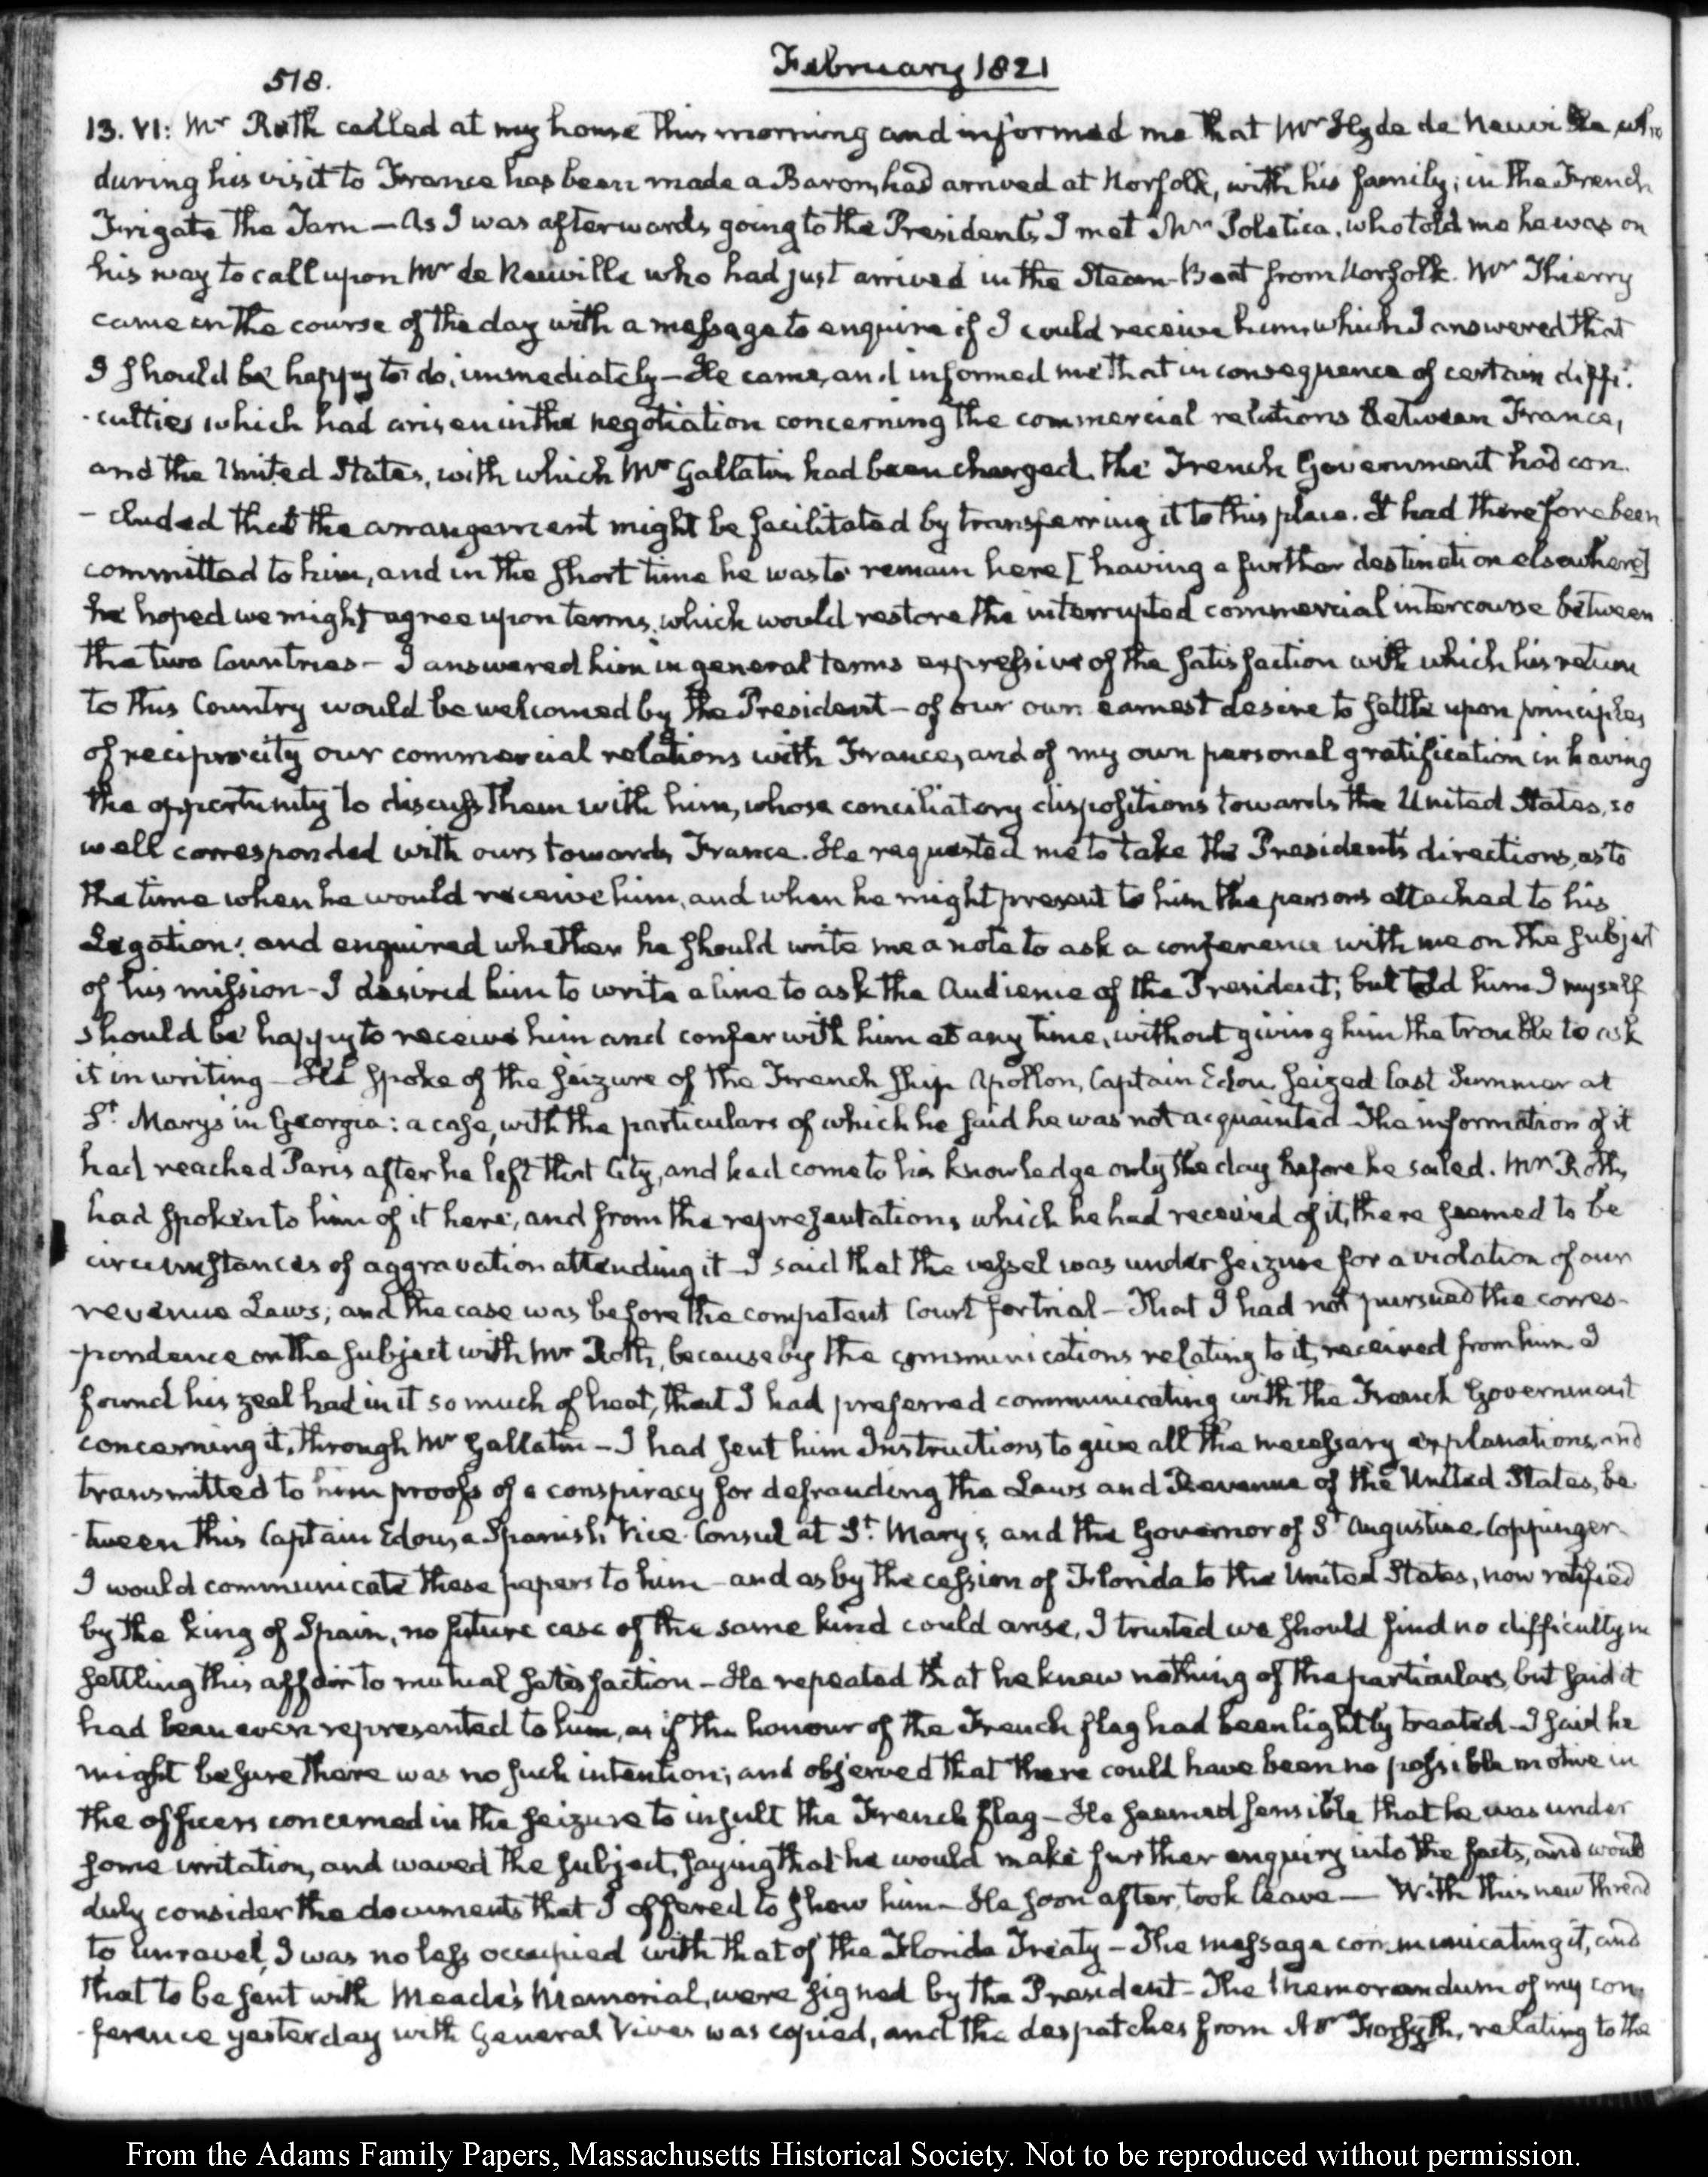 518.
February 1821
13. VI: Mr Roth called at my house this morning and informed me that Mr Hyde de Neuville, who
during his visit to France has been made a Baron, had arrived at Norfolk, with his family; in the French
Frigate the Tarn — As I was afterwards going to the President's I met Mr Poletica, who told me he was on
his way to call upon Mr de Neuville who had just arrived in the Steam-Boat from Norfolk. Mr Thierry
came in the course of the day with a message to enquire if I could receive him, which I answered that
I should be happy to do, immediately — He came, and informed me that in consequence of certain diffi-
-culties which had arisen in the negotiation concerning the commercial relations between France,
and the United States, with which Mr Gallatin had been charged, the French Government had con-
-cluded that the arrangement might be facilitated by transferring it to this place. It had therefore been
committed to him, and in the short time he was to remain here [having a further destination elsewhere]
he hoped we might agree upon terms, which would restore the interrupted commercial intercourse between
the two Countries — I answered him in general terms expressive of the satisfaction with which his return
to this Country would be welcomed by the President — of our own earnest desire to settle upon principles
of reciprocity our commercial relations with France, and of my own personal gratification in having
the opportunity to discuss them with him, whose conciliatory dispositions towards the United States, so
well corresponded with ours towards France. He requested me to take the President's directions, as to
the time when he would receive him, and when he might present to him the persons attached to his
Legation: and enquired whether he should write me a note to ask a conference with me on the subject
of his mission — I desired him to write a line to ask the Audience of the President; but told him I myself
should be happy to receive him and confer with him at any time, without giving him the trouble to ask
it in writing — He spoke of the seizure of the French ship Apollon, Captain Edou, seized last Summer at
St. Mary's in Georgia: a case, with the particulars of which he said he was not acquainted — The information of it
had reached Paris after he left that City, and had come to his knowledge only the day before he sailed. Mr Roth,
had spoken to him of it here, and from the representations which he had received of it, there seemed to be
circumstances of aggravation attending it — I said that the vessel was under seizure for a violation of our
revenue Laws; and the case was before the competent Court for trial — That I had not pursued the corres-
-pondence on the subject with Mr Roth, because by the communications relating to it, received from him I
found his zeal had in it so much of heat, that I had preferred communicating with the French Government
concerning it, through Mr Gallatin — I had sent him Instructions to give all the necessary explanations, and
transmitted to him proofs of a conspiracy for defrauding the Laws and Revenue of the United States, be
-tween this Captain Edou, a Spanish Vice-Consul at St. Mary's, and the Governor of St Augustine. Coppinger.
I would communicate these papers to him — and as by the cession of Florida to the United States, now ratified
by the King of Spain, no future case of the same kind could arise, I trusted we should find no difficulty in
settling this affair to mutual satisfaction — He repeated that he knew nothing of the particulars, but said it
had been even represented to him, as if the honour of the French flag had been lightly treated — I said he
might be sure there was no such intention; and observed that there could have been no possible motive in
the officers concerned in the seizure to insult the French flag — He seemed sensible that he was under
some irritation, and waved the subject, saying that he would make further enquiry into the facts, and would
duly consider the documents that I offered to shew him — He soon after, took leave — With this new thread
to unravel, I was no less occupied with that of the Florida Treaty — The message communicating it, and
that to be sent with Meade's Memorial, were signed by the President — The Memorandum of my con-
-ference yesterday with General Vives was copied, and the despatches from Mr Forsyth, relating to the
From the Adams Family Papers, Massachusetts Historical Society. Not to be reproduced without permission.